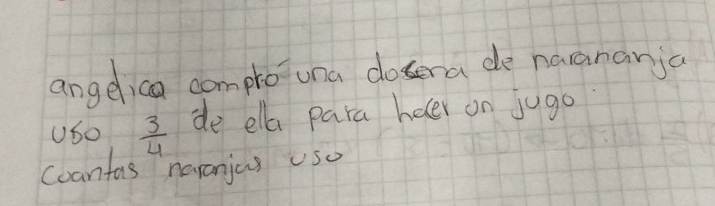 angelica compró una dosena de narananja
uso 3/4 de ella para hacer un jugo.
Coantas naranjas uso